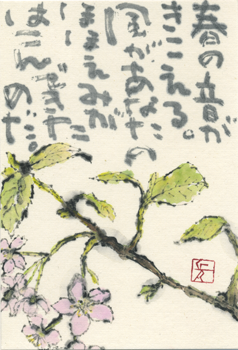 春の音が
きこえる。
風があなたの
ほほえみが
はこんできたのだ。